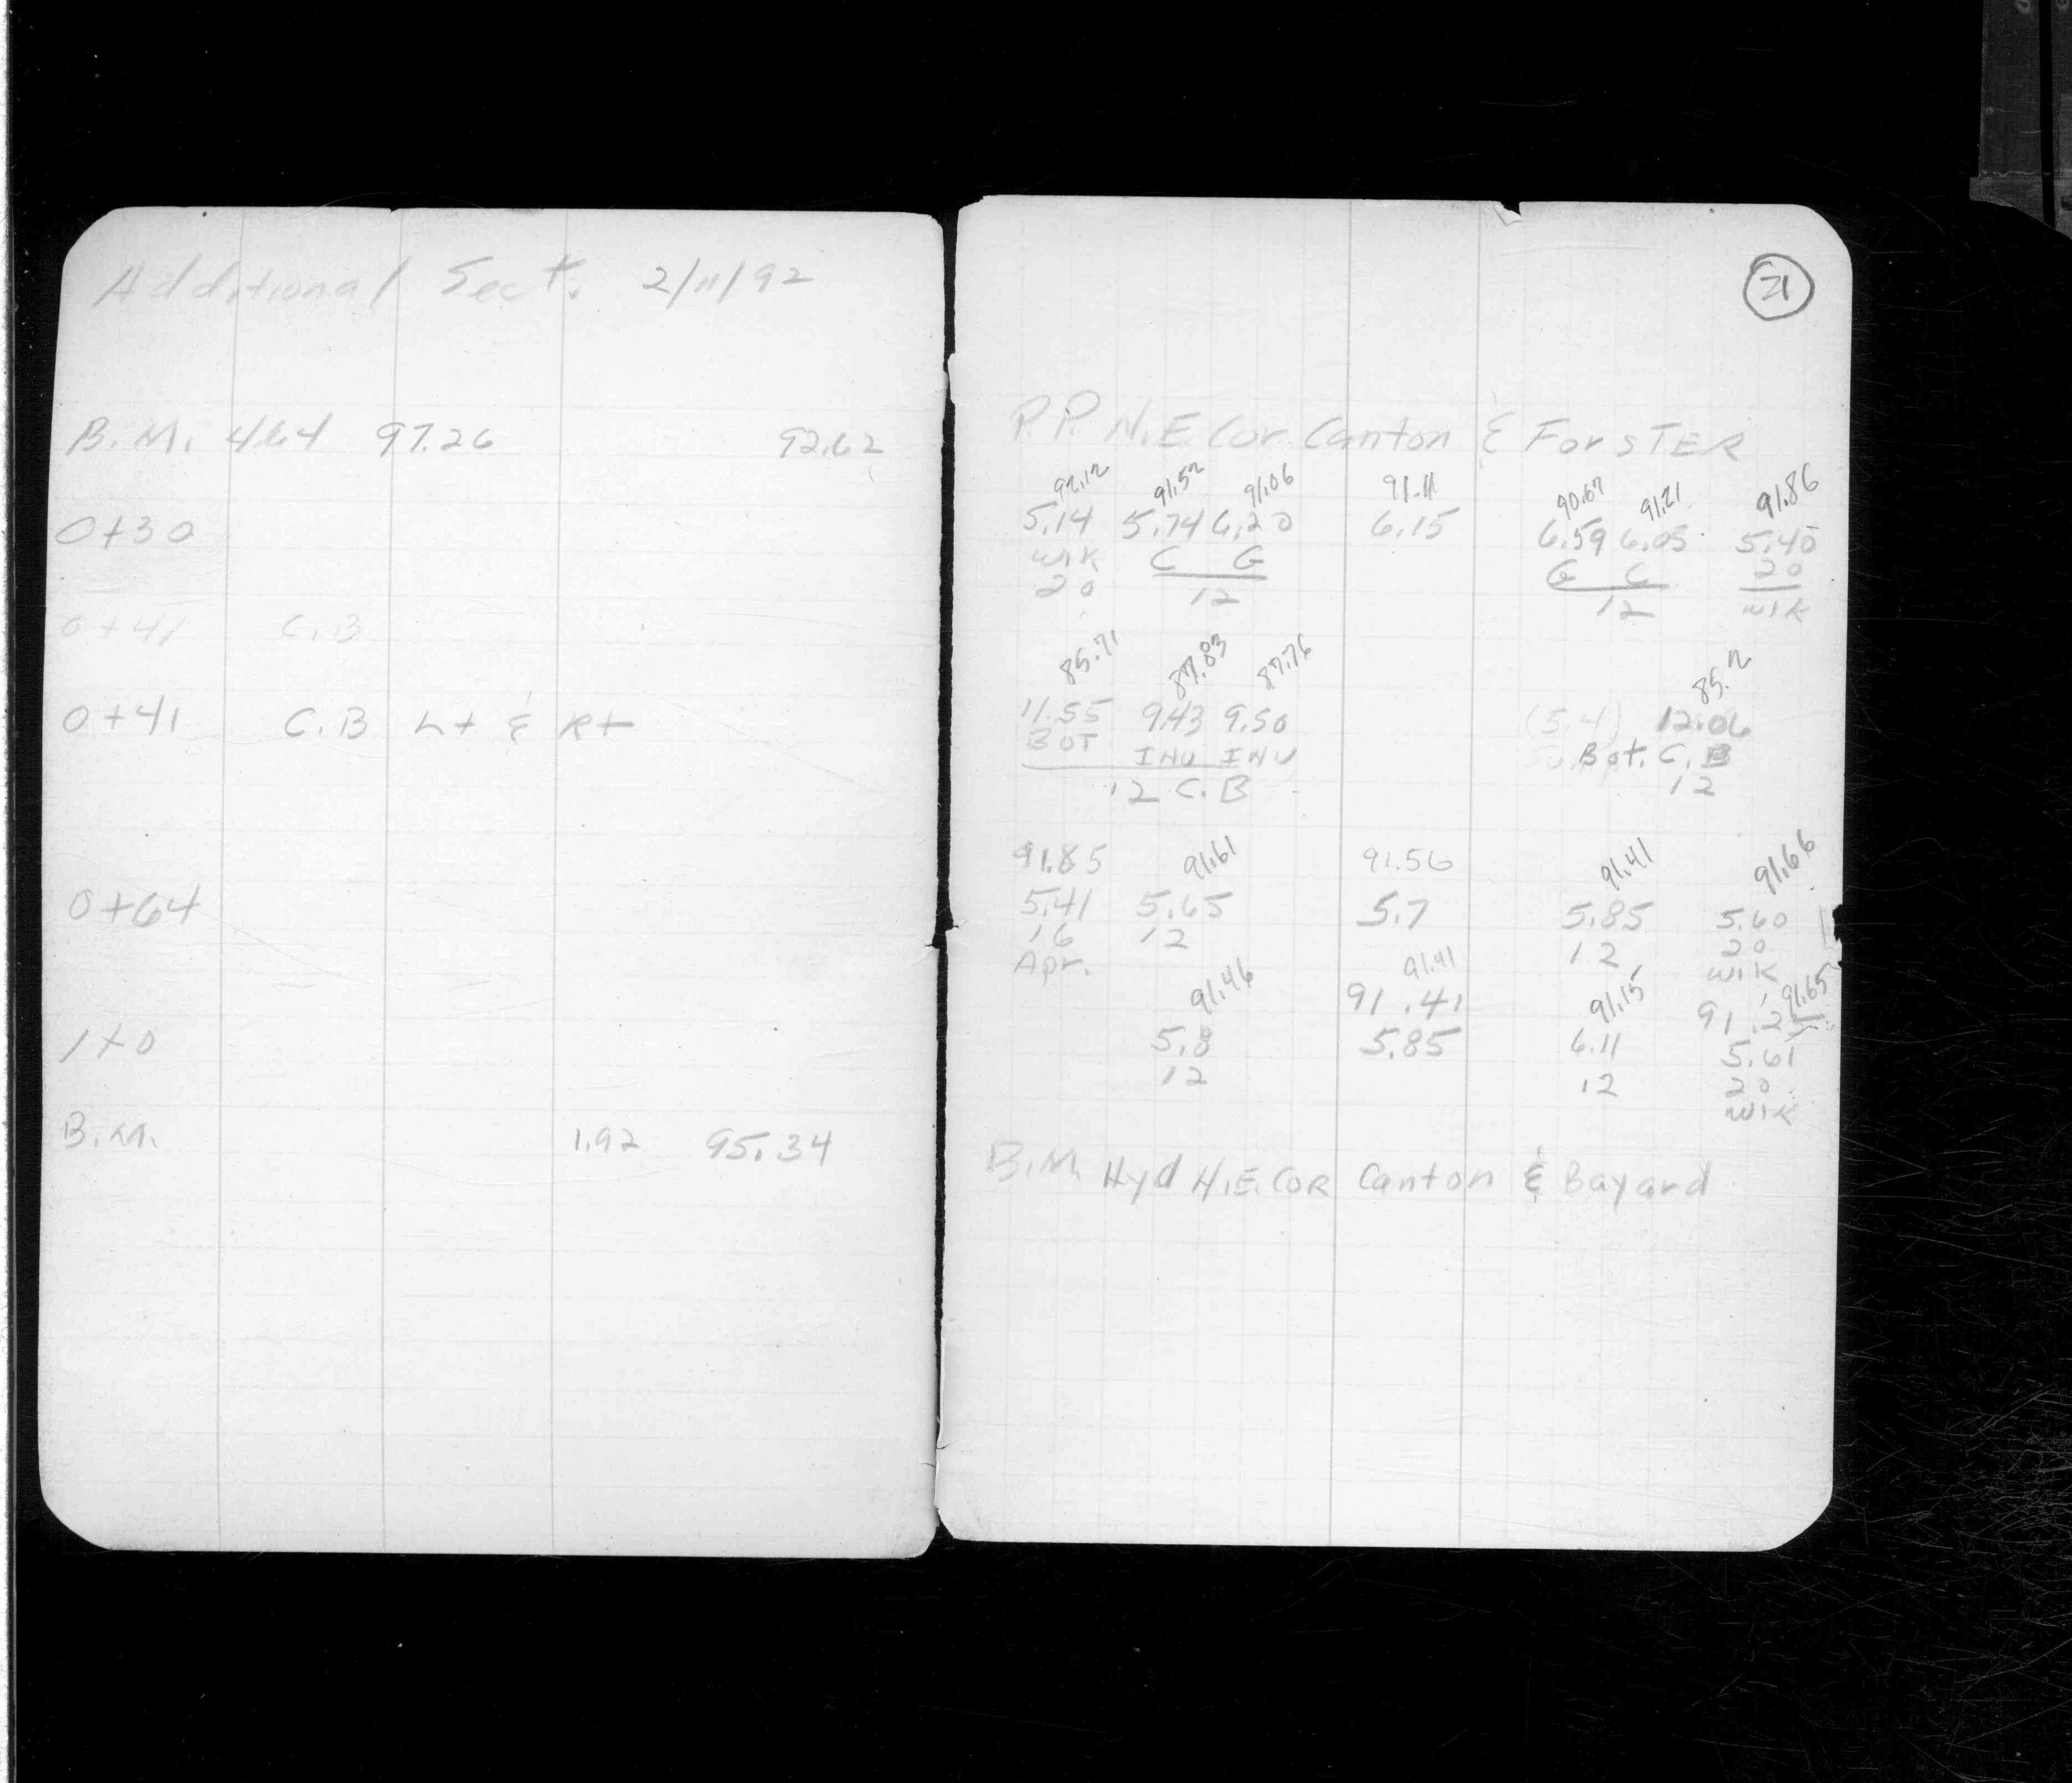 Additional Sect. 2/11/92
B.M. 4.64 97.26 92.62
0+30
0+41 C.B
0+41 C.B Lt & Rt
0+64
1+0
B.M. 1.92 95.34
21
P.P. N.E. Cor. Canton & ForSTER
92.12 91.52 91.06 91.11 90.67 91.21 91.86
5.14 5.74 6.20 6.15 6.59 6.05 5.40
WIK C G G C 20
20 12 12 WIK
85.71 87.83 87.76 85.2
11.55 9.43 9.50 (5.4) 12.06
BOT INV INV Bot. C.B
12 C.B 12
91.85 91.61 91.56 91.41 91.66
5.41 5.65 5.7 5.85 5.60
16 12 12 20
Apr. WIK
91.41
91.46 91.41 91.15 91.25 91.65
5.8 5.85 6.11 5.61
12 12 20
WIK
B.M. Hyd N.E. COR Canton & Bayard